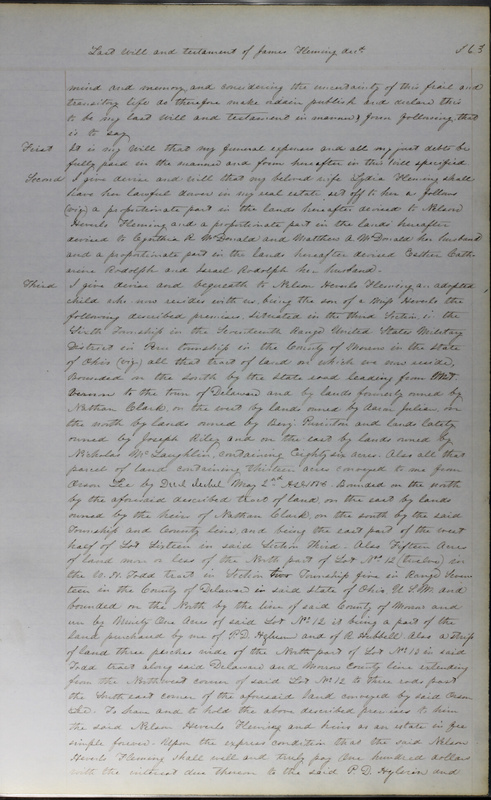 Last Will and testament of James Fleming decd. 563
mind and memory and considering the uncertainty of this frail and
transitory life do therefore make ordain publish and declare this
to be my last will and testament in manner & form following, that
is to say
First It is my Will that my funeral expenses and all my just debts be
fully paid in the manner and form hereafter in this Will specified
Second I give devise and will that my beloved wife Lydia Fleming shall
have her lawful dower in my real estate set off to her as follows
(viz) a proportionate part in the lands hereafter devised to Nelson
Heverlo Fleming and a proportionate part in the lands hereafter
devised to Cynthia R McDonald and Matthew A McDonald her husband
and a proportionate part in the lands hereafter devised Esther Cathe
rine Rodolph and Israel Rodolph her husband.
Third I give devise and bequeath to Nelson Heverlo Fleming an adopted
child who now resides with us being the son of a Heverlo the
following described premises situated in the third Section in the
Sixth Township in the Seventeenth Range United States Military
District in township in the County of Morrow in the state
of Ohio (viz) all that tract of land on which we now reside,
Bounded on the South by the State road leading from Mt.
Vernon to the town of Delaware and by lands formerly owned by
Nathan Clark, on the west by lands owned by Julian on
the north by lands owned by Benj. and lands lately
owned by Joseph Riley and on the east by lands owned by
Nicholas McLaughlin, containing Eighty six acres. Also all that
parcel of land containing thirteen acres conveyed to me from
Orson Lee by Deed dated May 2nd Bounded on the north
by the aforesaid described tract of land, on the east by lands
owned by the heirs of Nathan Clark, on the south by the said
Township and County line, and being the east part of the west
half of Lot Sixteen in said Section Third. Also Fifteen Acres
of land more or less of the North part of Lot No 12 (twelve) in
the N. H. Todd tract in Section two Township five in Range Seven
teen in the County of Delaware in said state of Ohio, U.S.M. and
bounded on the North by the line of said County of Morrow and
run by Ninety One Acres of said Lot No 12 it being a part of the
land purchased by me of P. D. and of A Hubbell Also a strip
of land three perches wide of the North part of Lot No 13 in said
Todd tract along said Delaware and Morrow County line extending
from the Northwest corner of said Lot No 12 to three rods past
the South east corner of the aforesaid land conveyed by said Orson
Lee. To have and to hold the above described premises to him
the said Nelson Heverlo Fleming and heirs as an estate in fee
simple forever. Upon the express condition that the said Nelson
Heverlo Fleming shall well and truly pay One hundred dollars
with the interest due thereon to the said P. D. and